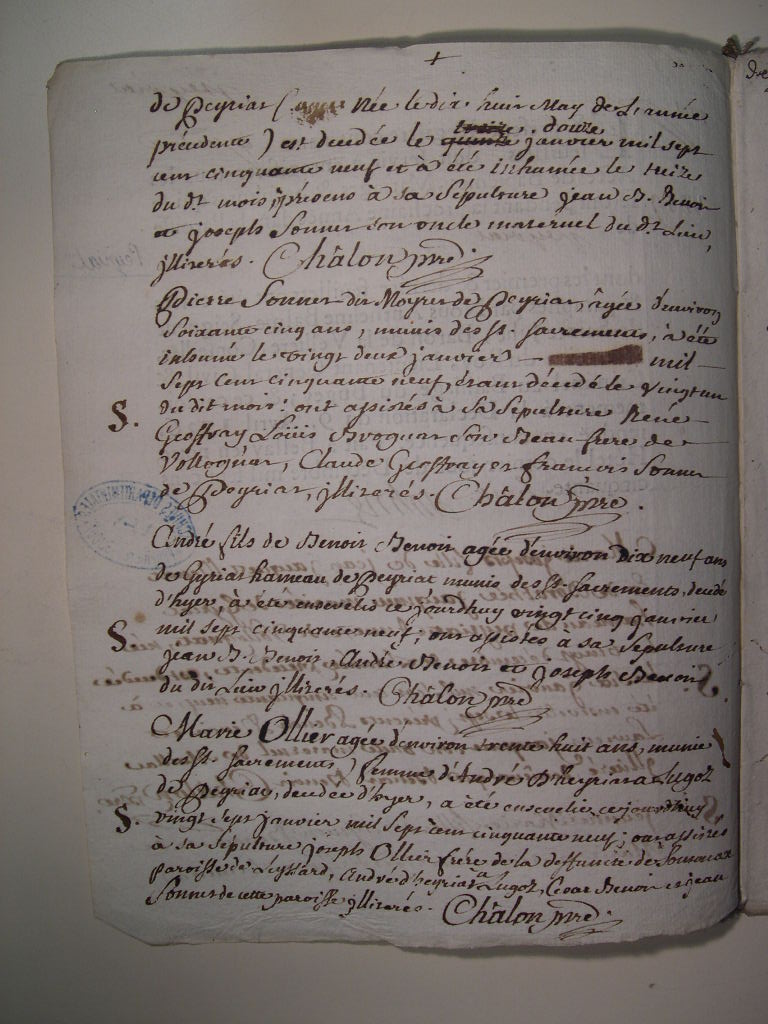 +
de Peyriat ( née le dix huit May de L'année
précédente ) est décédée le douze janvier mil sept
cent cinquante neuf et à été inhumée le treize
du dt. mois, présens à sa sépulture jean B. Benoit
et joseph Sonner son oncle maternel du dt. Lieu,
jllitérés. Châlon prre.
Pierre Sonner dit Moyret de Peyriat, âgée d'environ
soixante cinq ans, munis des sts. sacrements, à été
inhumé le vingt deux janvier — mil
sept cent cinquante neuf, étant décédé le vingt un
du dit mois: ont assistés à sa sepulture René
S.
Geoffray Loüis Broquet son Beau frere de
Vollognat, Claude Geoffray et francois Sonner
de Peyriat, jllitérés. Châlon prre.
André fils de Benoit Benoit agée d'environ Dix neuf ans
de Gyriat hameau de Peyriat munis des sts. sacrements, décédé
d'hyer, à été enseveli ce jourdhuy vingt cinq janvier
S
mil sept cinquante neuf; ont assistés à sa sepulture
jean B. Benoit, André Benoit et joseph Benoit
du dit Lieu jllitérés. Châlon prre
Marie Ollier agée d'environ trente huit ans, munie
des sts. sacrements, femme d'André D'heyriat à Lugot
de Peyriat, décédée d'hyer, a été ensevelie ce jourdhuy
S.
vingt sept janvier mil sept cent cinquante neuf; ont assistés
à sa sépulture joseph Ollier frére de la deffuncte de
paroisse de Leyssard, André d'heyriat à Lugot, Benoit et jean
Sonner de cette paroisse jllitérés. Châlon prre.